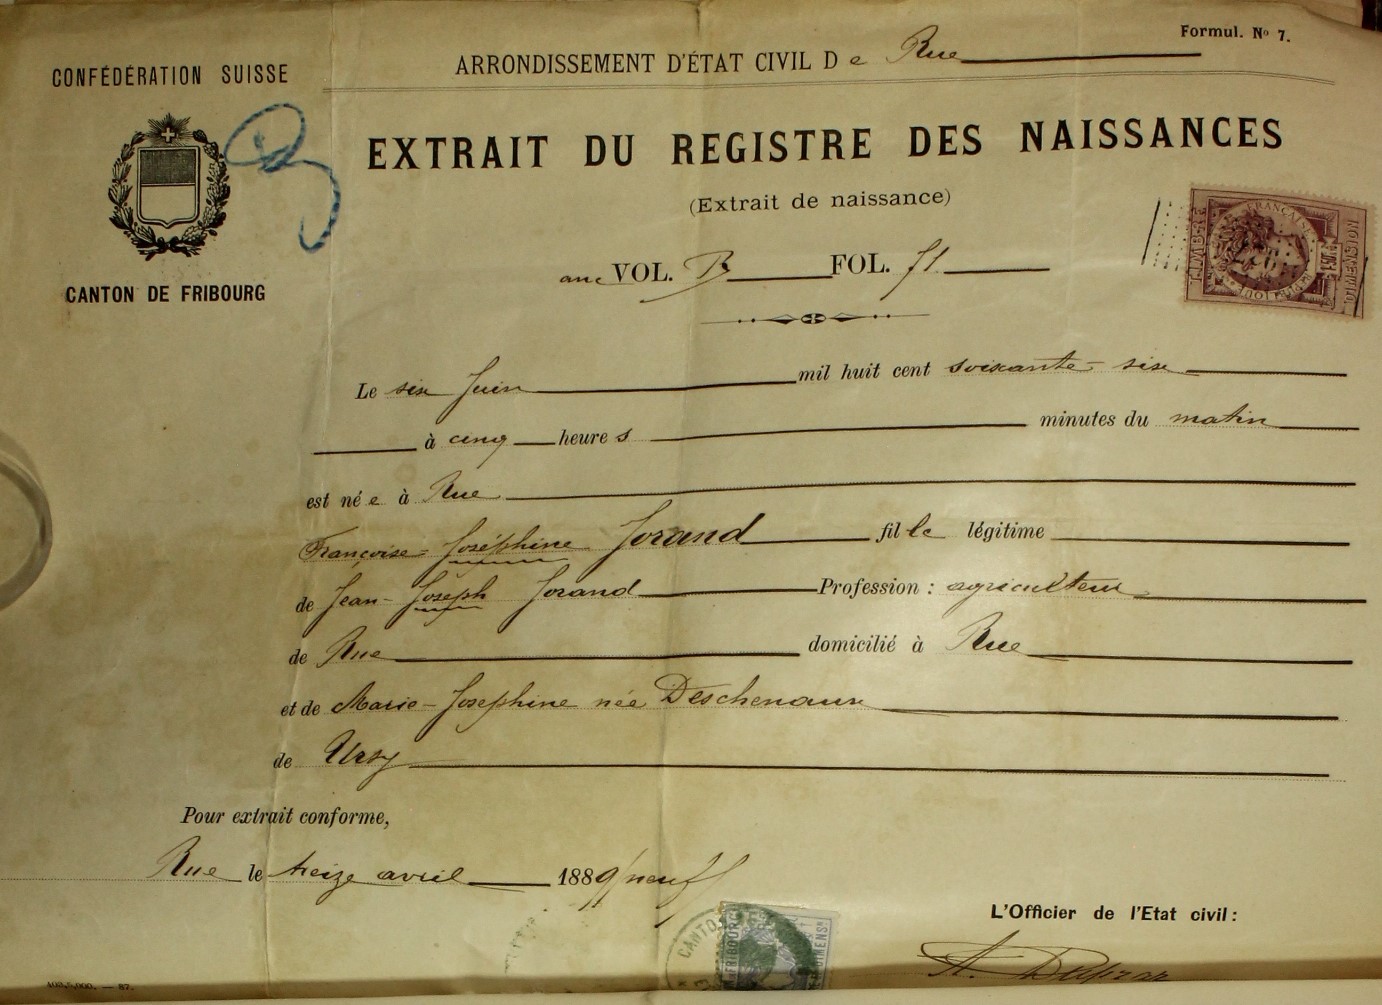 Formul. Nº 7.
ARRONDISSEMENT D'ÉTAT CIVIL De Rue
CONFÉDÉRATION SUISSE
EXTRAIT DU REGISTRE DES NAISSANCES
(Extrait de naissance)
anc VOL. B FOL. 71
CANTON DE FRIBOURG
TIMBRE
FRANÇAISE
DIMENSION
Le six Juin mil huit cent soixante-six
à cinq heures minutes du matin
est née à Rue
Françoise-Joséphine Jorand fille légitime
de Jean-Joseph Jorand Profession : agriculteur
de Rue domicilié à Rue
et de Marie-Josephine née Deschenaux
de Ursy
Pour extrait conforme,
Rue le treize avril 1889/neuf
L'Officier de l'Etat civil :
CANTO
FRIBOURG
DIMENS
A.
403,5,000. — 87.